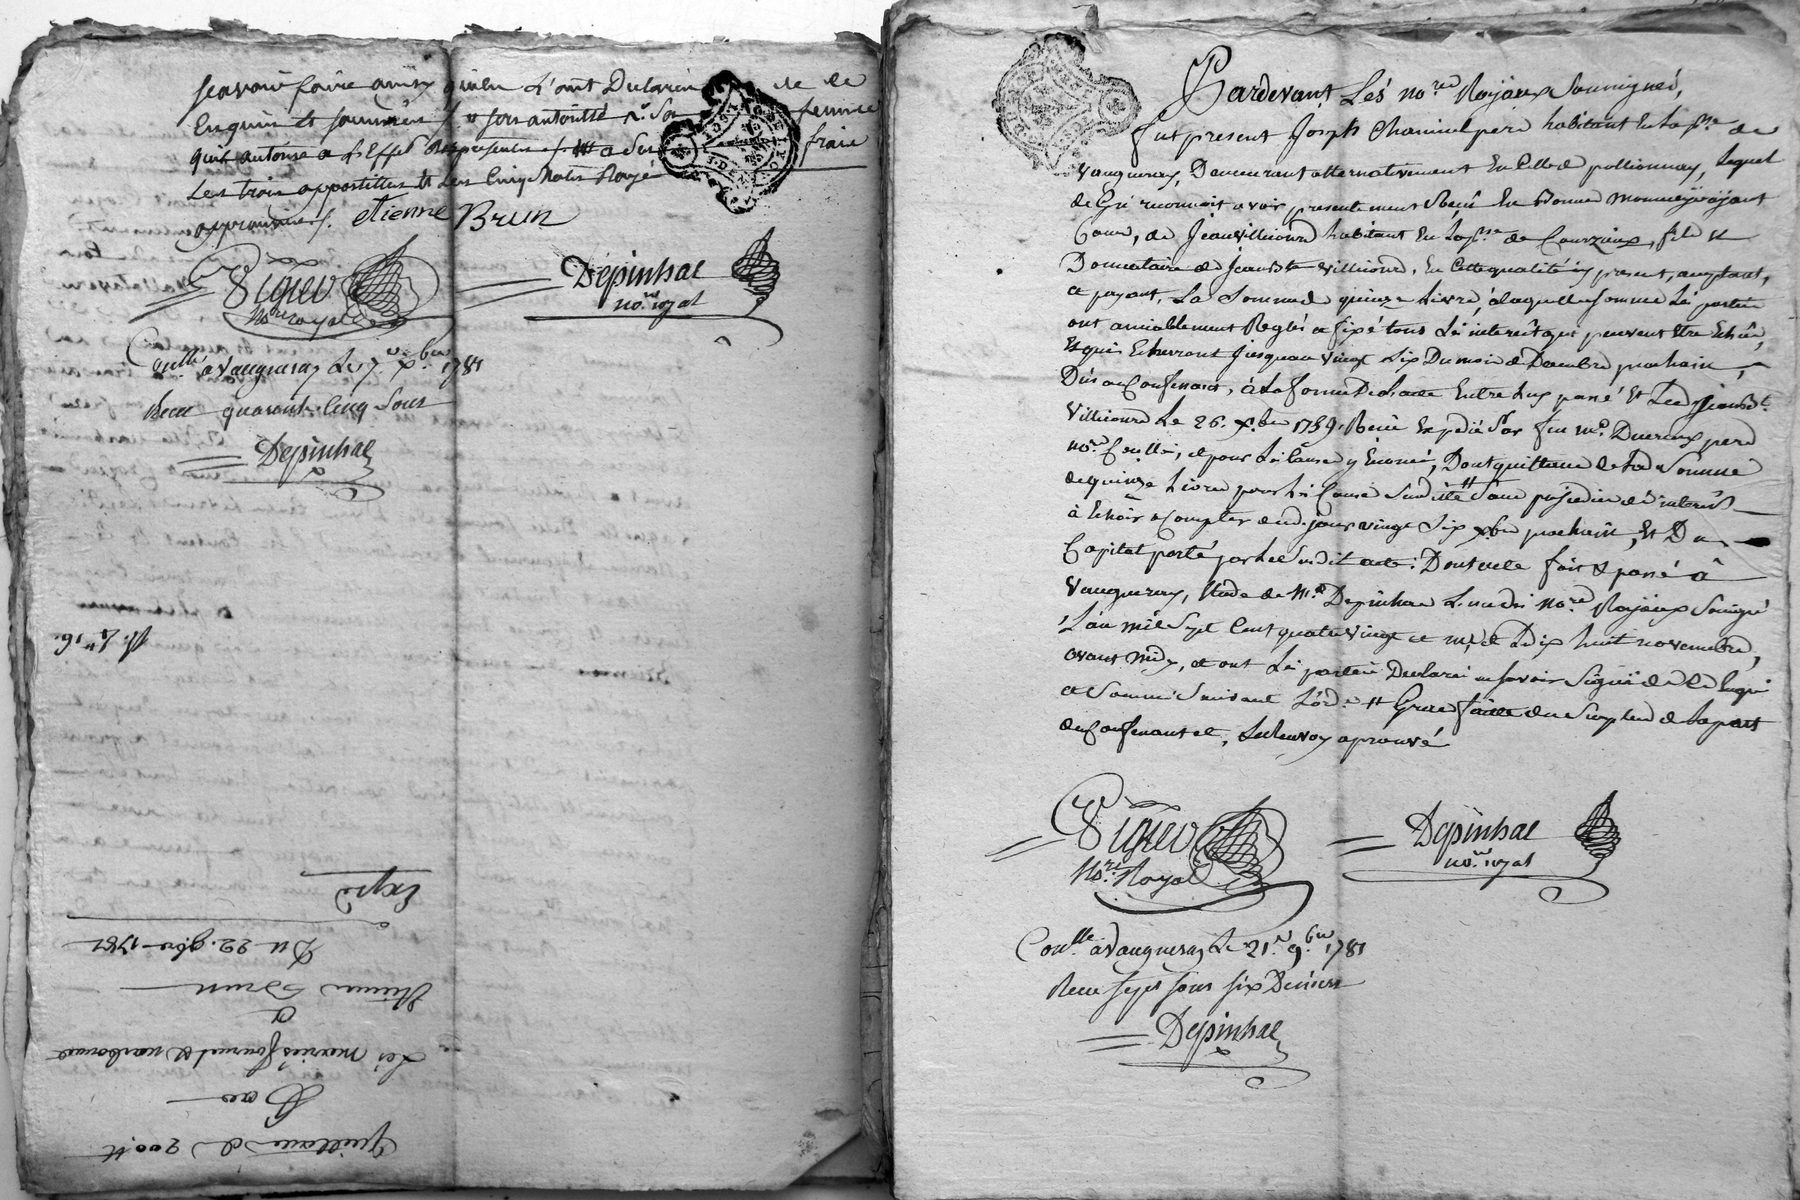 scavoir faire ainsy qu'elle L'ont Declaré de ce
Enquis et sommés / # son autorité & sa femme
qu'il autorise a L'Effet des presentes / ## a ses frais
Les trois appostilles et Les Cinq Mots Rayé
approuvées /. etienne Brun
Viguer
No.re royal
Depinhac
no.re royal
Con.llé a Vaugneray Le 7.e x.bre 1781
Recu quarante Cinq Sous
Depinhac
Exp.é
Du 22. 9bre 1781
Etienne Brun
a
Les mariés fournel & narbonne
Par
Quittance de 200 #
Pardevant Les no.res Royaux Soussignés,
fut present Joseph Chaminel pere habitant En la p.sse de
Vaugneray, Demeurant alternativement En Celle de pollionnay, Lequel
de Gré reconnoit avoir presentement Recû En Bonne Monnoye ayant
Cours, de Jean villiond habitant En la p.sse de Courzieux, fils et
Donnataire de Jean B.te villiond, En Cette qualité icy present, acceptant,
et payant, La Somme de quinze Livres, a laquelle Somme Les parties
ont amiablement Reglés et fixé tous Les interêts qui peuvent Etre Echûs,
Et qui Echerront Jusqu'au vingt Six Du mois de Decembre prochain,
Dûs au Confessant, à La forme De L'acte Entre Luy passé Et Led. Jean B.te
Villiond Le 26. x.bre 1759. Recû Expedié Par feu M.e Ducreux pere
no.re Con.llé, et pour Les Causes y Enoncé, Dont quittance de lad. Somme
de quinze Livres pour Les Causes Susdites # Sans prejudice des interêts
à Echoir a Compter dud. jour vingt Six xbre prochain, Et Du
Capital porté par Led. Susdit acte. Dont acte fait & passé à
Vaugneray, Etude de M.e Depinhac L'un des No.res Royaux Soussigné
L'an mil Sept Cent quatre vingt et un, et Le Dix huit novembre,
avant midy, et ont Les parties Declaré ne Savoir Signer de ce Enquis
et Sommés Suivant L'ord.ce # Grace faitte du Surplus de La part
du Confessant et, Le Renvoy aprouvé
Viguer
No.re Royal
Depinhac
no.re royal
Con.llé a Vaugneray Le 21.e 9.bre 1781
Recu Sept Sous Six Deniers
Depinhac